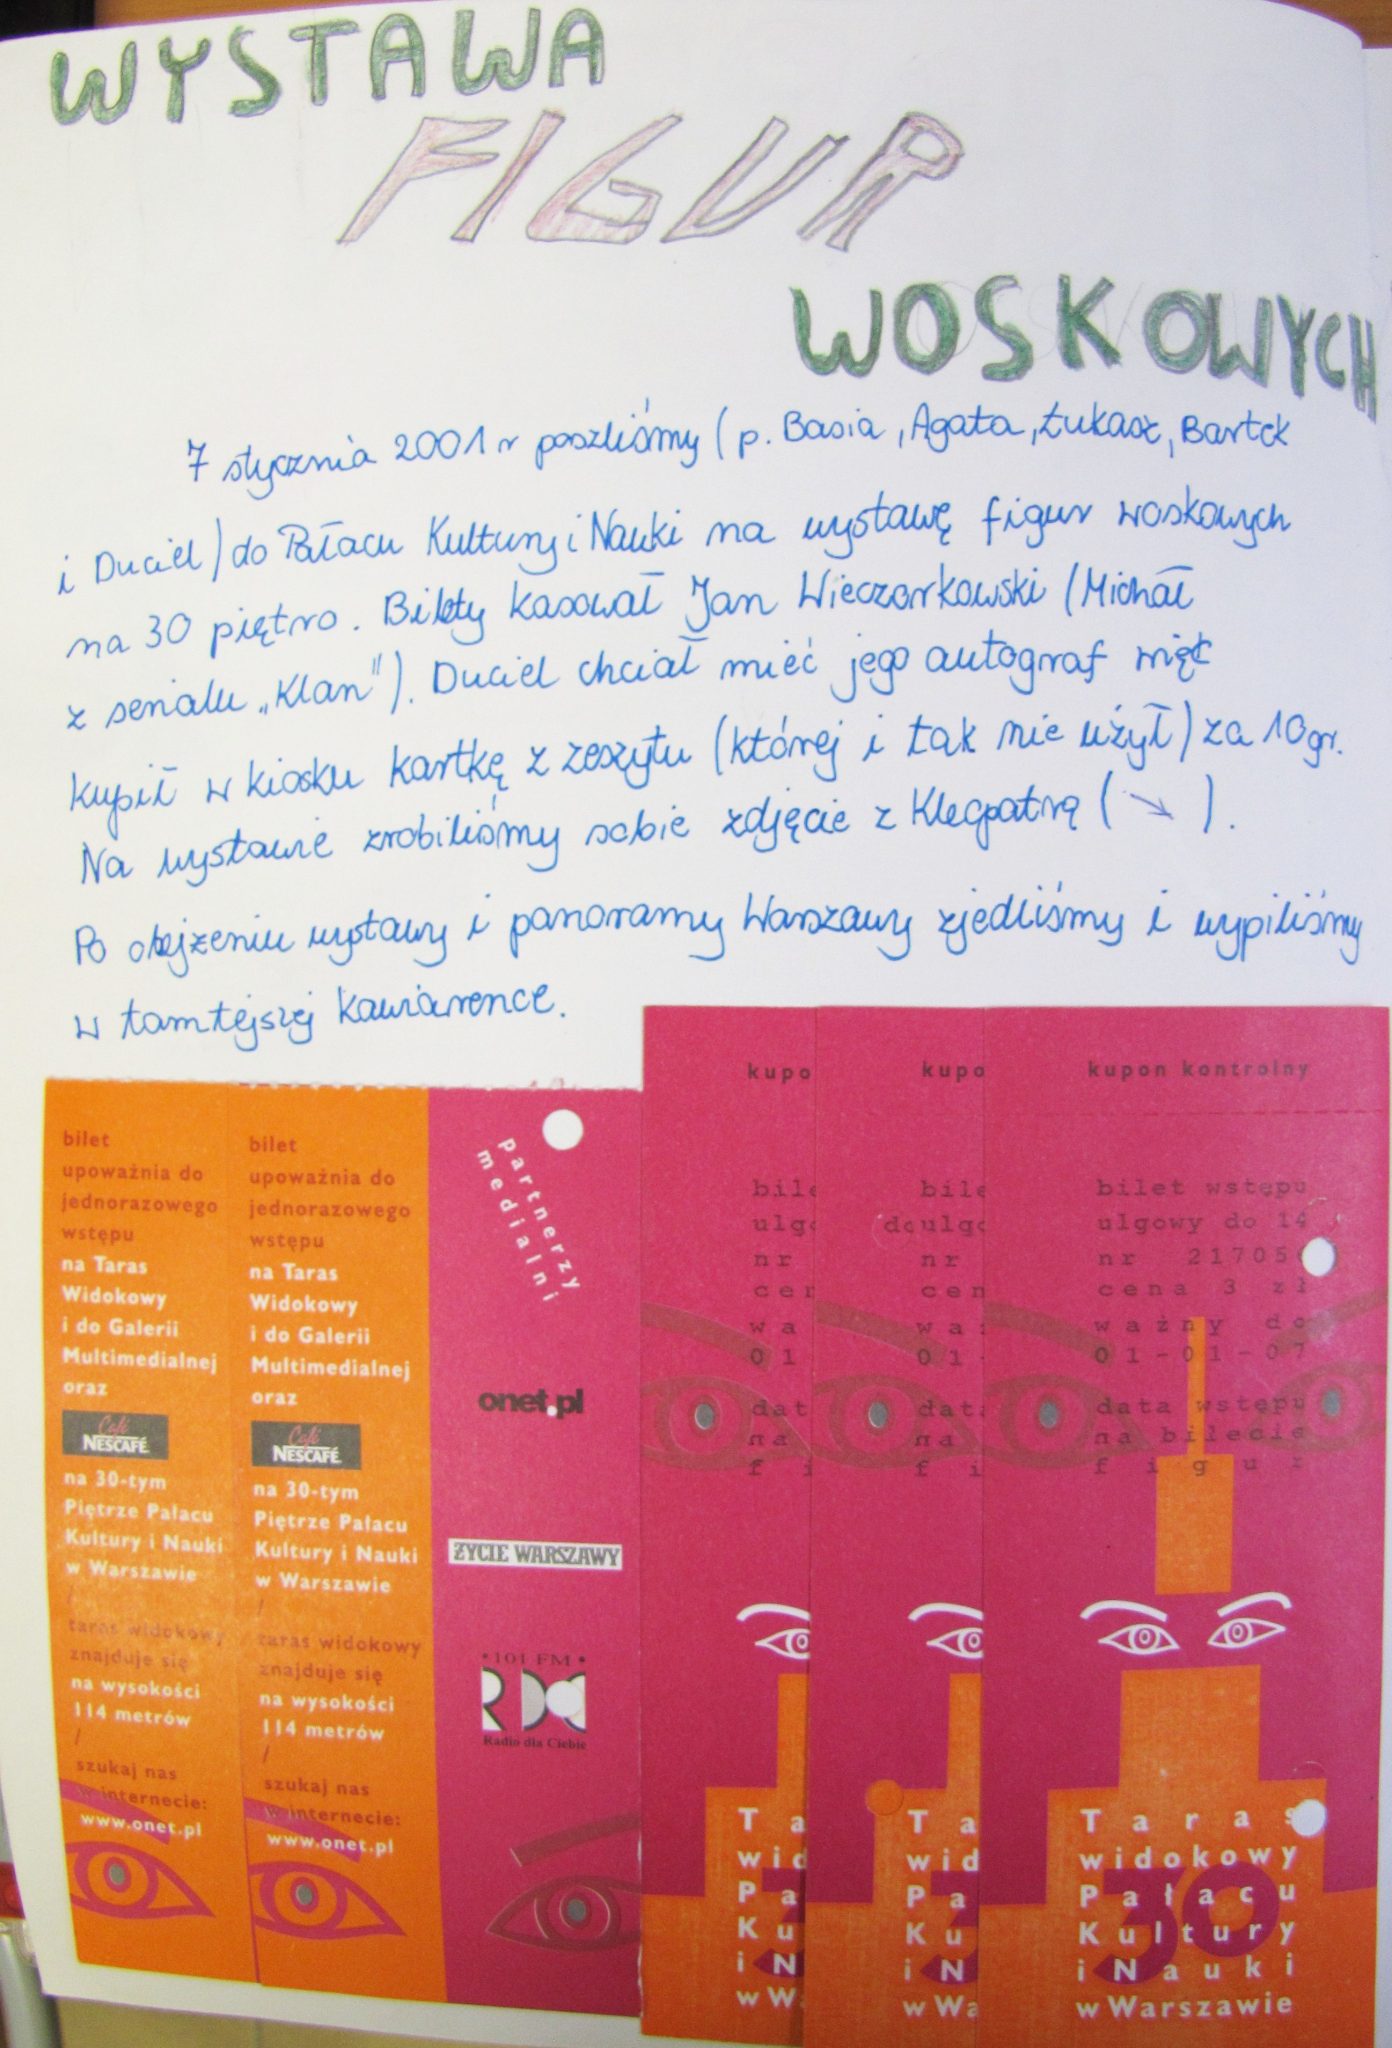 WYSTAWA
FIGUR
WOSKOWYCH
7 stycznia 2001 r poszliśmy (p. Basia, Agata, Łukasz, Bartek
i Duciel) do Pałacu Kultury i Nauki na wystawę figur woskowych
na 30 piętro. Bilety kasował Jan Wieczorkowski (Michał
z serialu „Klan”). Duciel chciał mieć jego autograf więc
kupił w kiosku kartkę z zeszytu (której i tak nie użył) za 10 gr.
Na wystawie zrobiliśmy sobie zdjęcie z Kleopatrą (↘).
Po obejżeniu wystawy i panoramy Warszawy zjedliśmy i wypiliśmy
w tamtejszej kawiarence.
bilet
upoważnia do
jednorazowego
wstępu
na Taras
Widokowy
i do Galerii
Multimedialnej
oraz
Café
NESCAFÉ
na 30-tym
Piętrze Pałacu
Kultury i Nauki
w Warszawie
/
taras widokowy
znajduje się
na wysokości
114 metrów
/
szukaj nas
w internecie:
www.onet.pl
bilet
upoważnia do
jednorazowego
wstępu
na Taras
Widokowy
i do Galerii
Multimedialnej
oraz
Café
NESCAFÉ
na 30-tym
Piętrze Pałacu
Kultury i Nauki
w Warszawie
/
taras widokowy
znajduje się
na wysokości
114 metrów
/
szukaj nas
w internecie:
www.onet.pl
partnerzy
medialni
onet.pl
ŻYCIE WARSZAWY
• 101 FM •
RDC
Radio dla Ciebie
kupo
bile
ulgo
nr
cen
wa
01
dat
na
fi
Ta
wid
Pa
Ku
i N
w W
kupo
bile
doulgo
nr
cen
wa
01-
data
na
fi
Ta
wid
Pa
Ku
i N
w Wa
kupon kontrolny
bilet wstępu
ulgowy do 14
nr 21705
cena 3 zł
ważny do
01-01-07
data wstępu
na bilecie
figur
Taras
widokowy
Pałacu
Kultury
i Nauki
w Warszawie
30